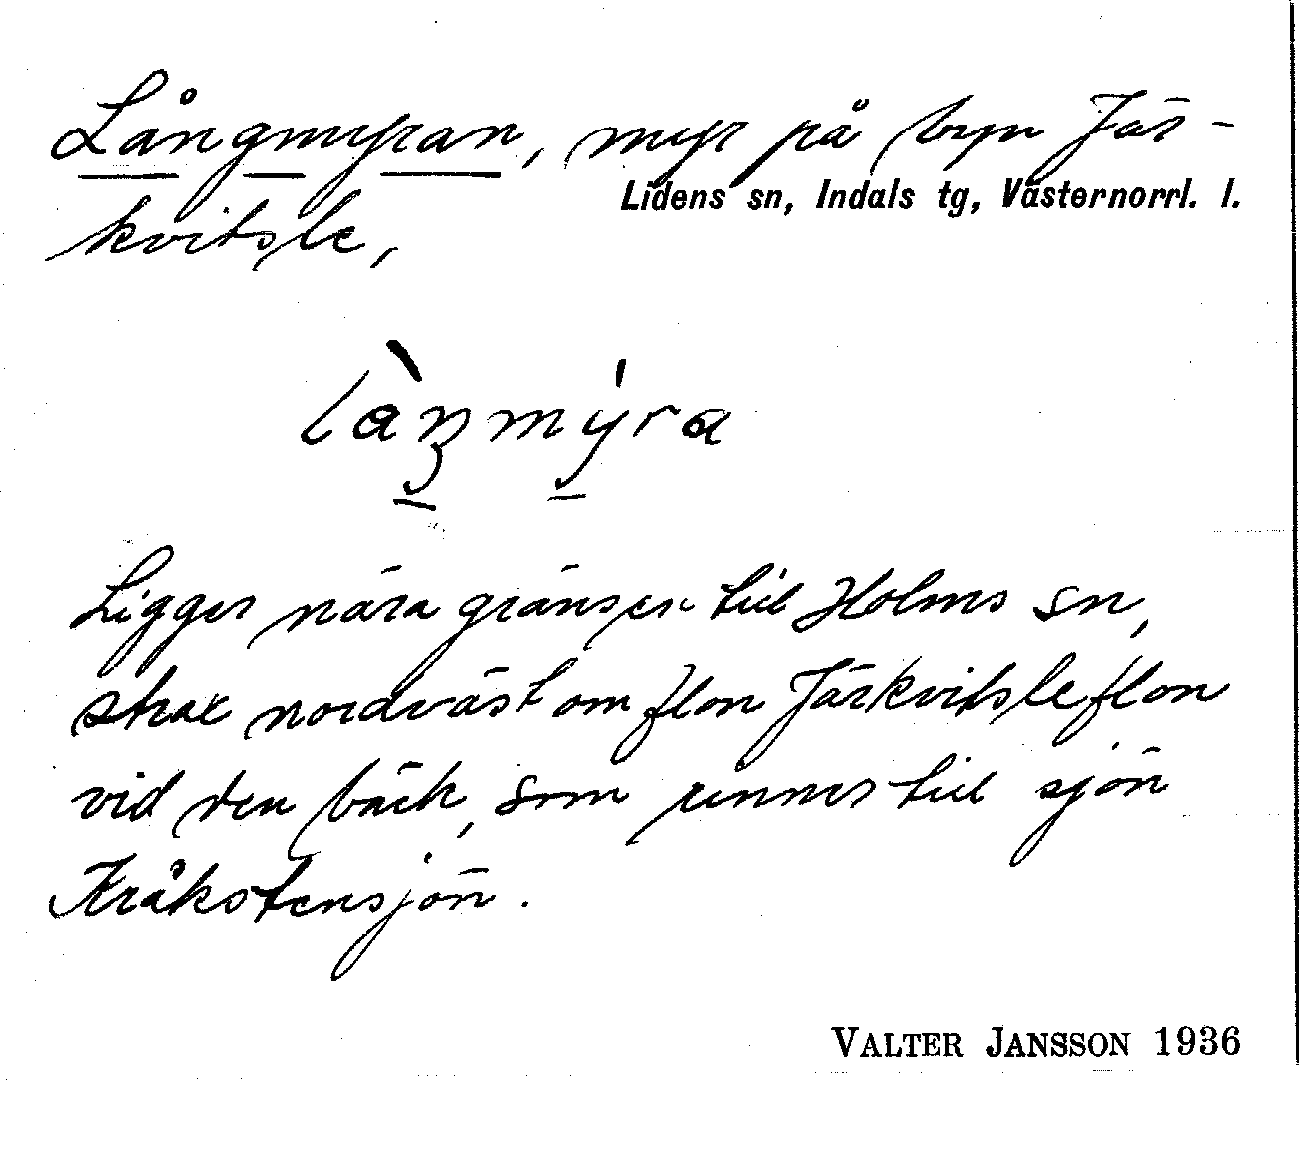 Långmyran, myr på byn Jär-
Lidens sn, Indals tg, Västernorrl. l.
kvitsle,
làŋmýra
Ligger nära gränsen till Holms sn,
strax nordväst om flon Järkvitsleflon
vid den bäck, som rinner till sjön
Kråkstensjön.
VALTER JANSSON 1936